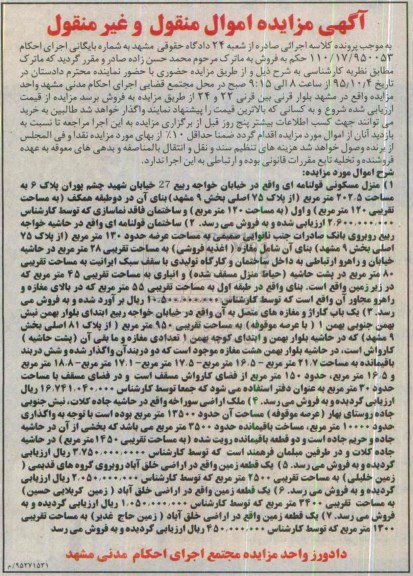 آگهی مزایده اموال منقول و غیر منقول
به موجب پرونده کلاسه اجرائی صادره از شعبه ۲۴ دادگاه حقوقی مشهد به شماره بایگانی اجرای احکام
۱۱۰/۱۷/۹۵۰۰۵۳ حکم به فروش به ماترک مرحوم محمد حسن زاده صادر و مقرر گردید که ماترک
مطابق نظریه کارشناسی به شرح ذیل و از طریق مزایده حضوری با حضور نماینده محترم دادستان در
تاریخ ۹۵/۱۰/۴ از ساعت ۸ الی ۹:۱۵ صبح در محل مجتمع قضایی اجرای احکام مدنی مشهد واحد
مزایده واقع در مشهد بلوار قرنی بین قرنی ۲۲ و ۲۴ از طریق مزایده به فروش برسد مزایده از قیمت
ارزیابی شده شروع و به کسانی که بالاترین قیمت را پیشنهاد نمایند واگذار خواهد شد طالبین به خرید
می توانند جهت کسب اطلاعات بیشتر پنج روز قبل از برگزاری مزایده به این اجرا مراجعه تا نسبت به
بازدید آنان از اموال مورد مزایده اقدام گردد ضمنا حداقل ۱۰٪ از بهای مورد مزایده نقدا و فی المجلس
از برنده وصول خواهد شد هزینه های تنظیم سند و نقل و انتقال بالمناصفه و بدهی های معوقه به عهده
فروشنده و تخلیه تابع مقررات قانونی بوده و ارتباطی به این اجرا ندارد.
شرح اموال مورد مزایده:
۱) منزل مسکونی قولنامه ای واقع در خیابان خواجه ربیع 27 خیابان شهید چشم پوران پلاک ۶ به
مساحت ۲۰۲.۵ متر مربع (از پلاک ۷۵ اصلی بخش ۹ مشهد) بنای آن در دوطبقه همکف (به مساحت
تقریبی ۱۲۰ متر مربع) و اول (به مساحت ۱۲۰ متر مربع) و ساختمان فاقد نماسازی که توسط کارشناس
۲.۶۰۰.۰۰۰.۰۰۰ ارزیابی شده و به فروش می رسد. ۲) ساختمان قولنامه ای واقع در حاشیه خواجه
ربیع روبروی بانک صادرات جنب نانوایی صمیمی به مساحت عرصه حدود ۱۳۰ متر مربع (از پلاک ۷۵
اصلی بخش ۹ مشهد) بنای آن شامل مغازه (اغذیه فروشی) به مساحت تقریبی ۲۸ متر مربع در حاشیه
خیابان و راهرو ارتباطی به داخل ساختمان و کارگاه تولیدی با سقف سبک ایرانیت به مساحت تقریبی
۸۰ متر مربع در پشت حاشیه (حیاط منزل مسقف شده) و انباری به مساحت تقریبی ۴۵ متر مربع که
در زیر زمین واقع است. بنای واقع در طبقه اول به مساحت تقریبی ۵۵ متر مربع که در بالای مغازه و
راهرو مجاور آن واقع است که توسط کارشناس ۱۰.۵۰۰.۰۰۰.۰۰۰ ریال بر آورد شده و به فروش می
رسد. ۳) یک باب گاراژ و مغازه های متصل به آن واقع در خیابان خواجه ربیع ابتدای بلوار بهمن نبش
بهمن جنوبی بهمن ۱ (با عرصه موقوفه) به مساحت تقریبی ۹۵۰ متر مربع (از پلاک ۸۱ اصلی بخش
۹ مشهد) که در حاشیه بلوار بهمن و ابتدای کوچه بهمن ۱ تعدادی مغازه و ما بقی آن (پشت حاشیه)
کارواش است، در حاشیه بلوار بهمن هشت مغازه موجود است که دو دربندآن واگذار شده و شش دربند
باقیمانده به مساحت ۲۱.۷ متر مربع – ۱۶.۵ متر مربع – ۱۷.۵ متر مربع – ۱۷.۱ متر مربع – ۱۸.۰ متر مربع
و ۱۶.۵ متر مربع، حدود ۱۵۰ متر مربع از فضای کارواش مسقف است و در فضای مسقف با مساحت
حدود ۳۰ متر مربع به عنوان دفتر استفاده می شود که جمعا توسط کارشناس ۱۶.۷۴۱.۰۴۰.۰۰۰ ریال
ارزیابی گردیده و به فروش می رسد. ۴) ملک اراضی سوراخه واقع در حاشیه جاده کلات، نبش جنوبی
جاده روستای بهار (عرصه موقوفه) مساحت آن حدود ۱۳۵۰۰ متر مربع بوده است با توجه به واگذاری
حدود ۱۰۰۰۰ متر مربع، مساحت باقیمانده حدود ۳۵۰۰ متر مربع می باشد که بخشی از آن در حاشیه
جاده و حریم جاده است و دو قطعه باقیمانده رویت شده (به مساحت تقریبی ۱۴۵۰ متر مربع) در حاشیه
جاده کلات و در طرفین مبلمان فرهمند است که توسط کارشناس ۳.۷۵۰.۰۰۰.۰۰۰ ریال ارزیابی
گردیده و به فروش می رسد. ۵) یک قطعه زمین واقع در اراضی خلق آباد روبروی گروه های قدیمی (
زمین خلیلی) به مساحت تقریبی ۲۵۰۰ متر مربع که توسط کارشناس ۲.۰۵۰.۰۰۰.۰۰۰ ریال ارزیابی
گردیده و به فروش می رسد. ۶) یک قطعه زمین واقع در اراضی خلق آباد (زمین کربلایی حسین)
به مساحت تقریبی ۳۴۰۰ متر مربع که توسط کارشناس ۱.۰۵۰.۰۰۰.۰۰۰ ریال ارزیابی گردیده و به
فروش می رسد. ۷) یک قطعه زمین واقع در اراضی خلق آباد (زمین حاج غدیر) به مساحت تقریبی
۱۳۰۰ متر مربع که توسط کارشناس ۴۵۰.۰۰۰.۰۰۰ ریال ارزیابی گردیده و به فروش می رسد
دادورز واحد مزایده مجتمع اجرای احکام مدنی مشهد
۹۵۲۷۱۵۳۱/م